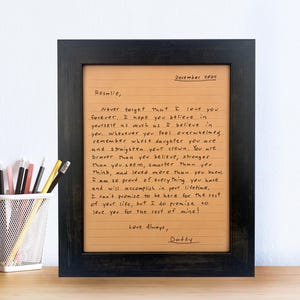 December 2005
Rosalie,
Never forget that I love you
forever. I hope you believe in
yourself as much as I believe in
you. Whenever you feel overwhelmed,
remember whose daughter you are
and straighten your crown. You are
braver than you believe, stronger
than you seem, smarter than you
think, and loved more than you know.
I am so proud of everything you have
and will accomplish in your lifetime,
I can't promise to be here for the rest
of your life, but I do promise to
love you for the rest of mine!
Love Always,
Daddy